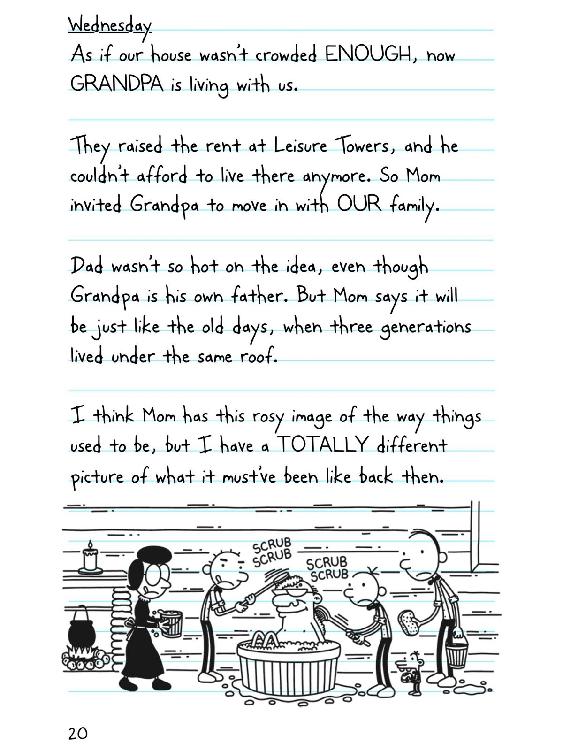 Wednesday
As if our house wasn't crowded ENOUGH, now
GRANDPA is living with us.
They raised the rent at Leisure Towers, and he
couldn't afford to live there anymore. So Mom
invited Grandpa to move in with OUR family.
Dad wasn't so hot on the idea, even though
Grandpa is his own father. But Mom says it will
be just like the old days, when three generations
lived under the same roof.
I think Mom has this rosy image of the way things
used to be, but I have a TOTALLY different
picture of what it must've been like back then.
SCRUB
SCRUB
SCRUB
SCRUB
20